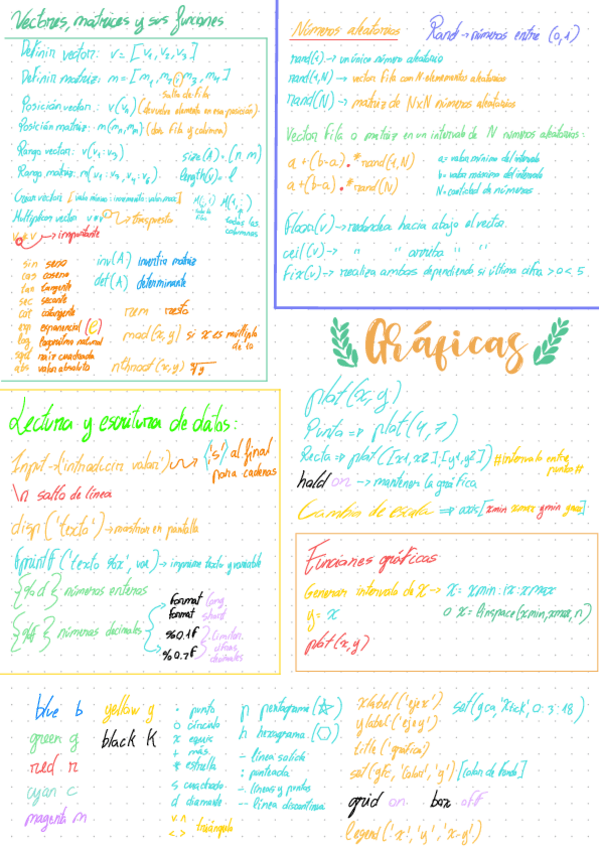 Vectores, matrices y sus funciones
Definir vector: v = [v₁, v₂, v₃]
Definir matriz: m = [m₁, m₂; m₃, m₄]
salto de fila
Posición vector: v(v₄) (devuelve elemento en esa posición)
Posición matriz: m(m₁,m₁) (dos fila y columna)
Rango vector: v(v₁:v₃)
size(A) = [n,m]
Rango matriz: m(v₁:v₃, v₄:v₆)
length(v) = l
Crear vector: [valor mínimo:incremento:valor max]
Multiplicar vector v*v' → traspuesto
todas las columnas
→ importante
sin seno
cos coseno
tan tangente
sec secante
cot cotangente
exp exponencial (e)
log logaritmo natural
sqrt raíz cuadrada
abs valor absoluto
inv(A) invertir matriz
det(A) determinante
rem resto
mod(x,y) si x es múltiplo de y
nthroot(x,y)
Números aleatorios
Rand → números entre (0,1)
rand(1) → un único número aleatorio
rand(1,N) → vector fila con N elementos aleatorios
rand(N) → matriz de NxN números aleatorios
Vector fila o matriz en un intervalo de N números aleatorios:
a+(b-a).*rand(1,N)
a+(b-a).*rand(N)
a= valor mínimo del intervalo
b= valor máximo del intervalo
N= cantidad de números
floor(v) → redondea hacia abajo el vector
ceil(v) → " " arriba " "
fix(v) → realiza ambas dependiendo si última cifra > o < 5
Gráficas
plot(x,y)
Punto => plot(4,7)
Recta => plot([x1,x2],[y1,y2]) #intervalo entre puntos#
hold on → mantener la gráfica
Cambio de escala => axis[xmin xmax ymin ymax]
Lectura y escritura de datos:
Input→('introducir valor') → ('s') al final para cadenas
\n salto de línea
disp('texto') → mostrar en pantalla
fprintf('texto %x', var) → imprime texto y variable
{%d} números enteros
{%f} números decimales
format long
format short
%0.1f
%0.7f
} limitar cifras decimales
Funciones gráficas
Generar intervalo de x → x = xmin:ix:xmax
y = x
o x = linspace(xmin,xmax,n)
plot(x,y)
blue b
green g
red r
cyan c
magenta m
yellow y
black k
. punto
o círculo
x equis
+ más
* estrella
s cuadrado
d diamante
v ^
< > triángulo
p pentagrama (☆)
h hexagrama (⬡)
- línea sólida
: punteada
-. líneas y puntos
-- línea discontinua
xlabel('eje x')
ylabel('eje y')
title('gráfica')
set(gcf,'color','y') [color de fondo]
set(gca,'Xtick',0:3:18)
grid on
box off
legend('x','y','x-y')